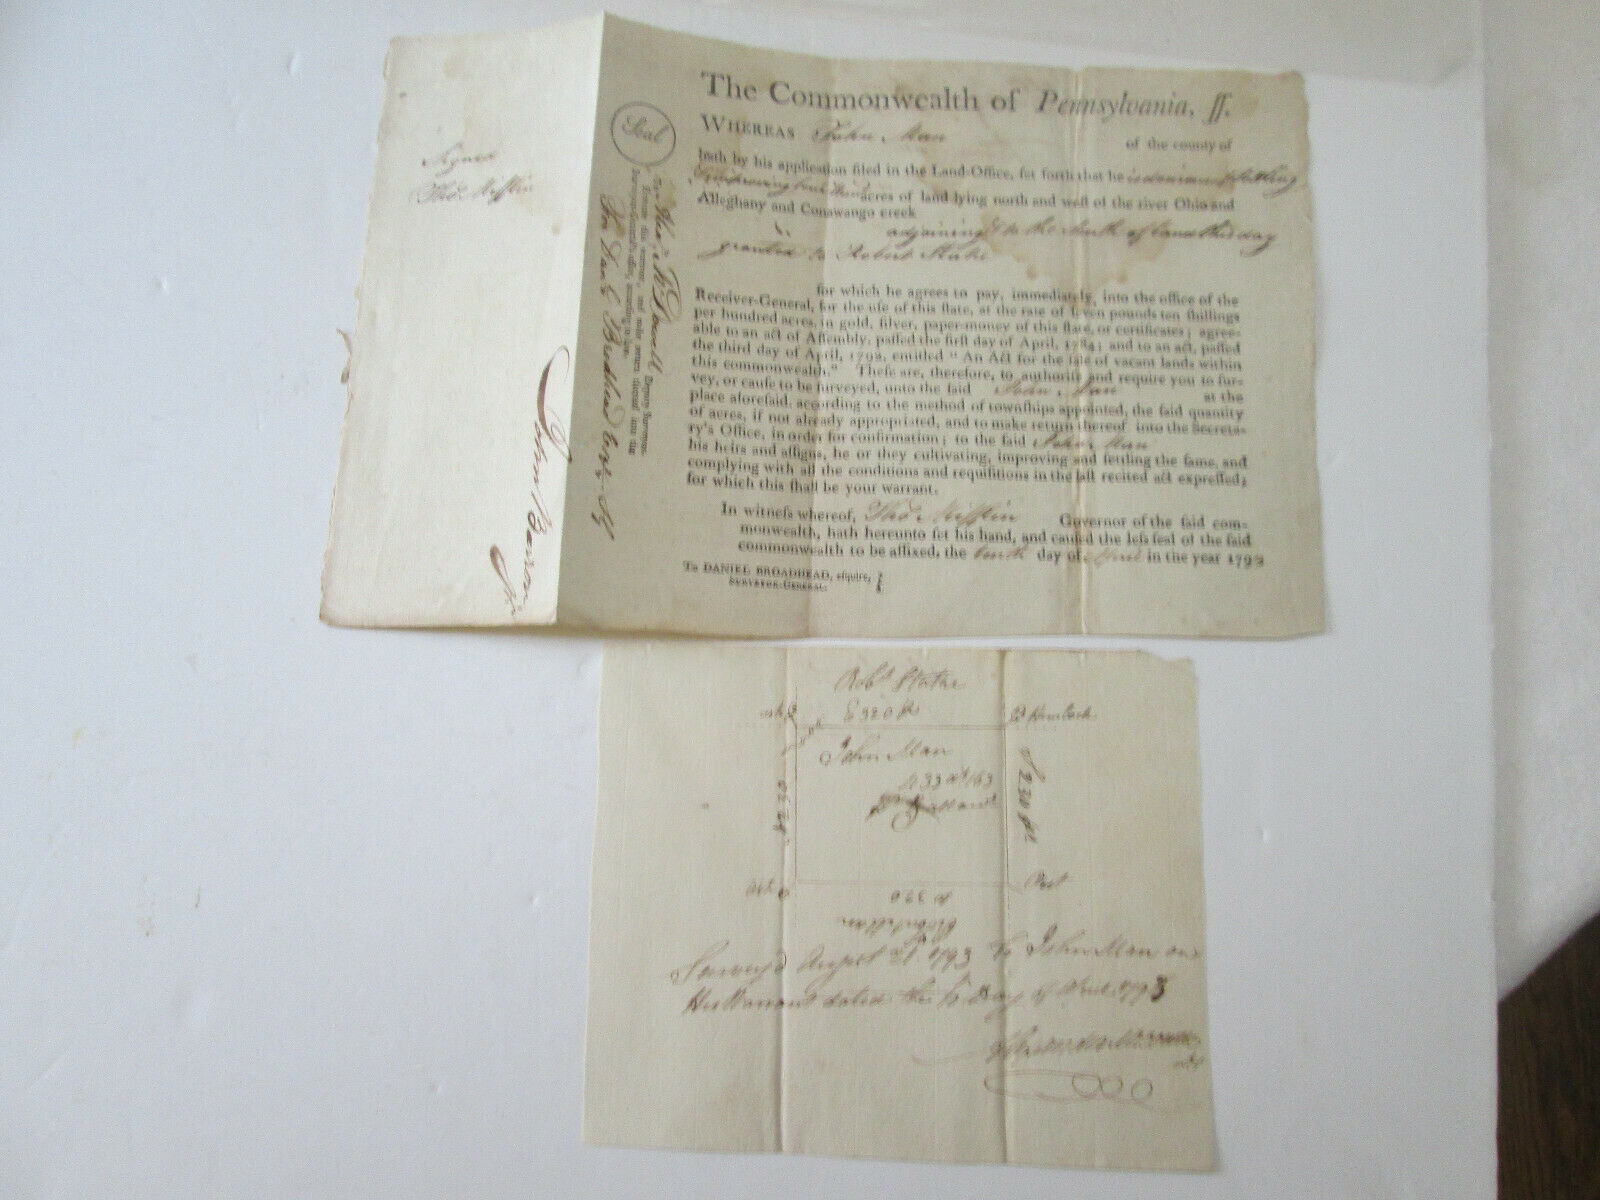 Signed
Thos Mifflin
John Barron
Jr
Seal
For Danl Brodhead
Deputy Surveyor.
Execute this warrant, and make return thereof into the
Surveyor-General's office, according to law.
The Commonwealth of Pennsylvania, ss.
WHEREAS John Man of the county of
hath by his application filed in the Land-Office, set forth that he is desirous of settling
& improving four hund acres of land lying north and west of the river Ohio and
Alleghany and Conawango creek
adjoining & to the North of land this day
granted to Robert
for which he agrees to pay, immediately, into the office of the
Receiver-General, for the use of this state, at the rate of seven pounds ten shillings
per hundred acres, in gold, silver, paper-money of this state, or certificates; agree-
able to an act of Assembly, passed the first day of April, 1784; and to an act, passed
the third day of April, 1792, entitled "An Act for the sale of vacant lands within
this commonwealth." These are, therefore, to authorise and require you to sur-
vey, or cause to be surveyed, unto the said John Man at the
place aforesaid, according to the method of townships appointed, the said quantity
of acres, if not already appropriated, and to make return thereof into the Secreta-
ry's Office, in order for confirmation; to the said John Man
his heirs and assigns, he or they cultivating, improving and settling the same, and
complying with all the conditions and requisitions in the last recited act expressed;
for which this shall be your warrant.
In witness whereof, Thos Mifflin Governor of the said com-
monwealth, hath hereunto set his hand, and caused the less seal of the said
commonwealth to be affixed, the tenth day of April in the year 1793
To DANIEL BROADHEAD, esquire,
SURVEYOR-GENERAL.
Robt
E 320 P
Hemlock
John Man
433 As 163
S 230 Ps
Post
W 320
Survey'd August 21st 1793 to John Man on
His Warrant dated the 10 Day of April 1793